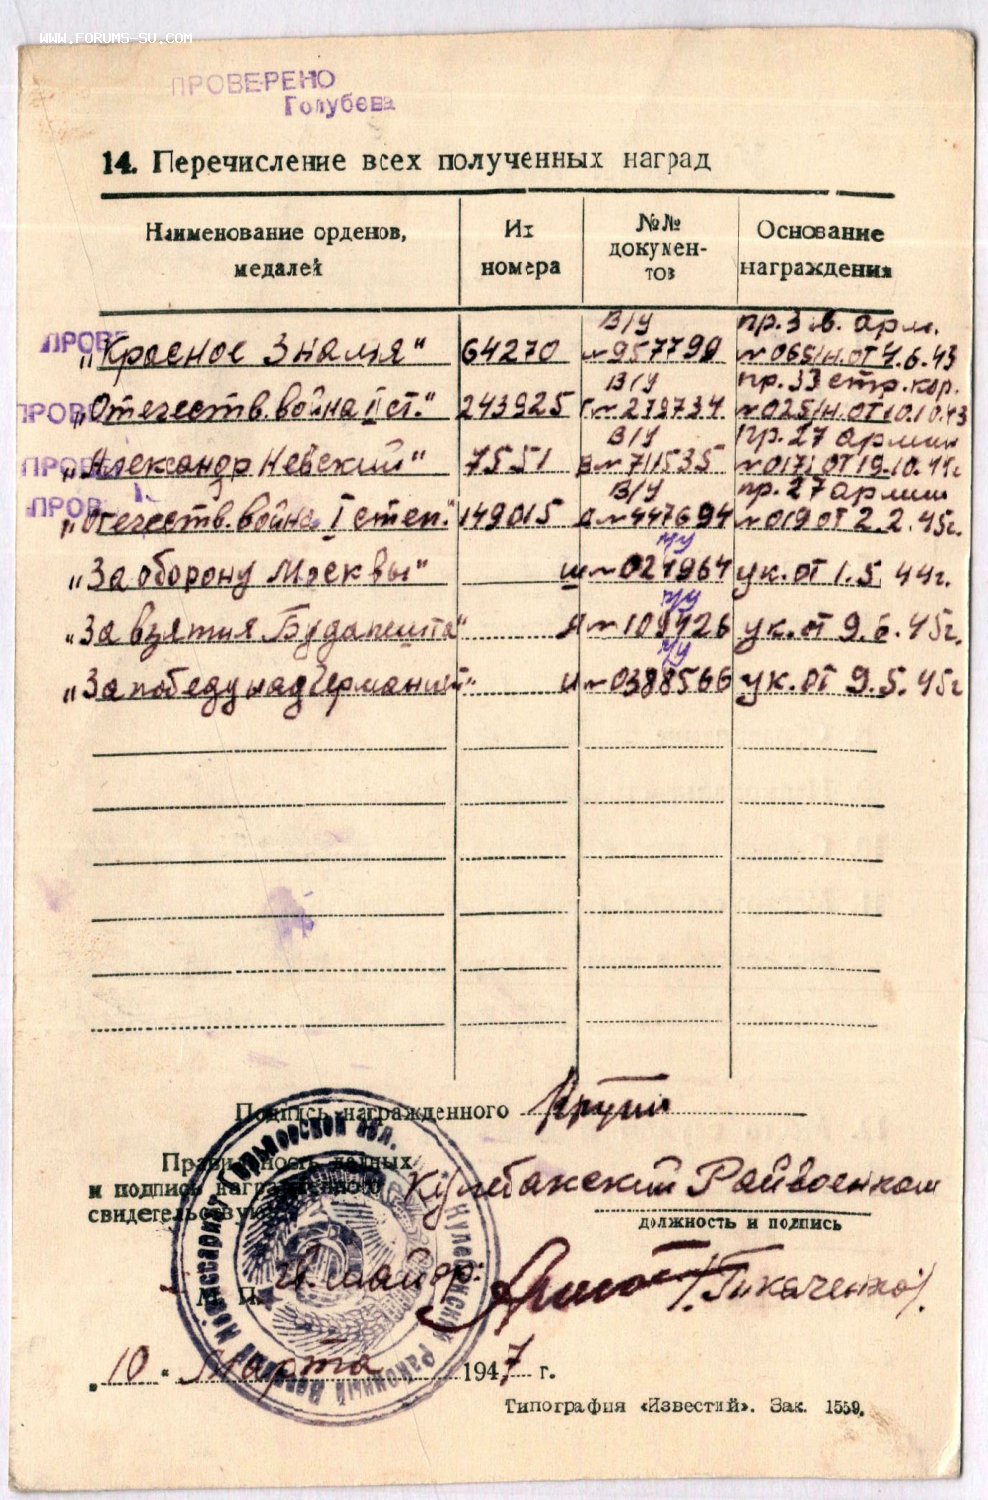 WWW.FORUMS-SU.COM
ПРОВЕРЕНО
Голубева
14. Перечисление всех полученных наград
Наименование орденов, медалей
Их номера
№№ документов
Основание награждения
ПРОВЕ
„Красное Знамя" 64270 в/у №957799 пр. 3 ув. арм. №065/н. от 4.6.43
ПРОВ
„Отечеств. война II ст." 243925 в/у г.№279734 пр. 33 стр. кор. №025/н. от 10.10.43
ПРОВЕ
„Александр Невский" 7551 в/у в№711535 пр. 27 армии №0171 от 19.10.44г
ПРОВ
„Отечеств. война I степ." 149015 в/у д№447694 пр. 27 армии №019 от 2.2.45г.
„За оборону Москвы" м/у ш№021964 ук. от 1.5 44г.
„За взятия Будапешта" м/у А№109426 ук. от 9.6.45г.
„За победу над Германией" м/у И№0388566 ук. от 9.5.45г
Подпись награжденного
Правильность данных
и подпись награжденного
свидетельствую:
Кулебакский Райвоенком
должность и подпись
М. П. майор: /Ткаченко/.
„10" Марта 1947 г.
Типография «Известий». Зак. 1559.